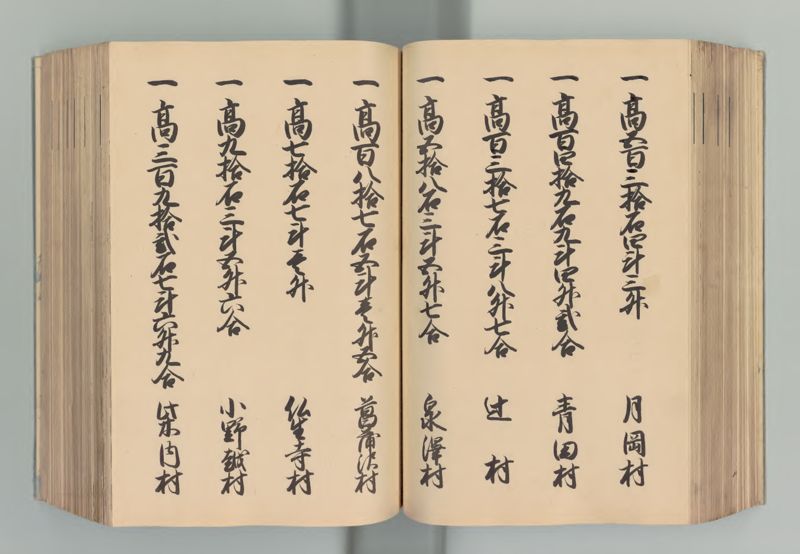 一 高五百三拾石四斗三升 月岡村
一 高百四拾九石九斗四升弐合 青田村
一 高百三拾七石三斗八升七合 辻村
一 高五拾八石三斗五升七合 泉澤村
一 高百八拾七石五斗壱升五合 菖蒲沢村
一 高七拾石七斗壱升 仏生寺村
一 高九拾石三斗五升六合 小野越村
一 高三百九拾弐石七斗六升九合 柴内村